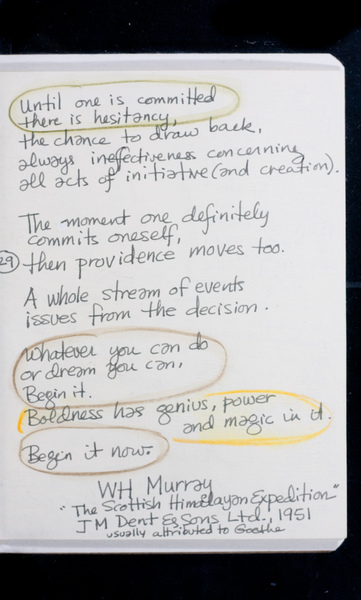 Until one is committed
there is hesitancy,
the chance to draw back,
always ineffectiveness concerning
all acts of initiative (and creation).
The moment one definitely
commits oneself,
29 then providence moves too.
A whole stream of events
issues from the decision.
Whatever you can do
or dream you can,
Begin it.
Boldness has genius, power
and magic in it.
Begin it now.
WH Murray
"The Scottish Himalayan Expedition"
JM Dent & Sons Ltd., 1951
usually attributed to Goethe